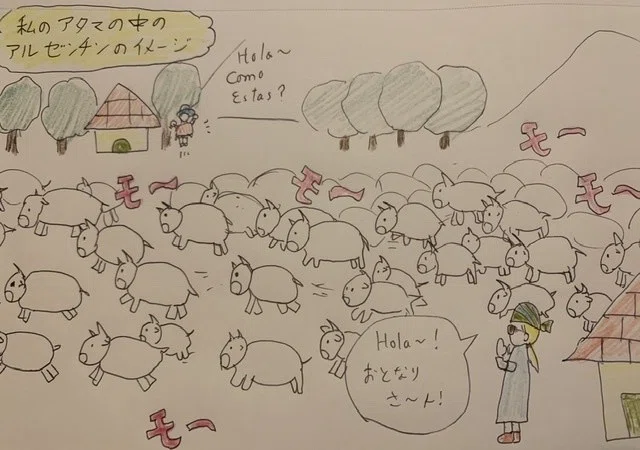 私のアタマの中の
アルゼンチンのイメージ
Hola~
Como
Estas?
モー
モー
モー
モー
Hola~!
おとなり
さ～ん!
モー